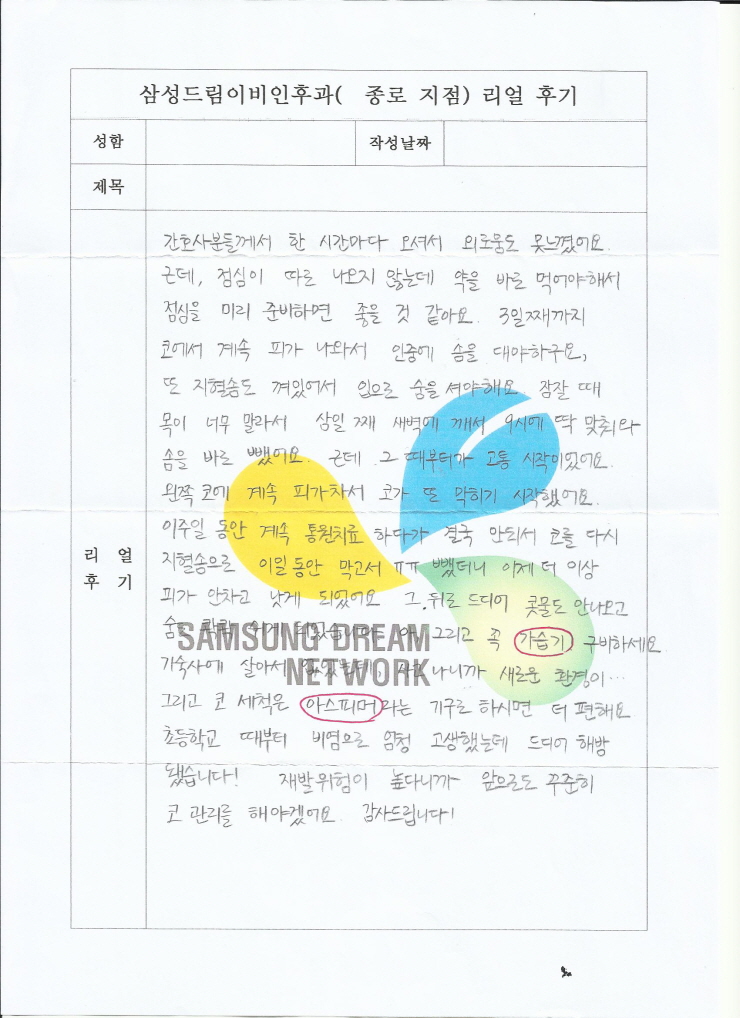 삼성드림이비인후과( 종로 지점) 리얼 후기
성함
작성날짜
제목
리 얼
후 기
간호사분들께서 한 시간마다 오셔서 외로움도 못느꼈어요.
근데, 점심이 따로 나오지 않는데 약을 바로 먹어야해서
점심을 미리 준비하면 좋을 것 같아요. 3일째까지
코에서 계속 피가 나와서 인중에 솜을 대야하구요,
또 지혈솜도 껴있어서 입으로 숨을 셔야해요. 잠잘 때
목이 너무 말라서 삼일 째 새벽에 깨서 9시에 딱 맞춰와
솜을 바로 뺐어요. 근데 그 때부터가 고통 시작이었어요.
왼쪽 코에 계속 피가차서 코가 또 막히기 시작했어요.
이주일 동안 계속 통원치료 하다가 결국 안되서 코를 다시
지혈솜으로 이일동안 막고서 ㅠㅠ 뺐더니 이제 더 이상
피가 안차고 낫게 되었어요. 그 뒤로 드디어 콧물도 안나오고
숨도 쉬게 되었습니다. 아, 그리고 꼭 가습기 구비하세요
기숙사에 살아서 없었는데, 사고 나니까 새로운 환경이…
그리고 코 세척은 아스피머라는 기구로 하시면 더 편해요
초등학교 때부터 비염으로 엄청 고생했는데 드디어 해방
됐습니다! 재발위험이 높다니까 앞으로도 꾸준히
코 관리를 해야겠어요. 감사드립니다!
SAMSUNG DREAM
NETWORK